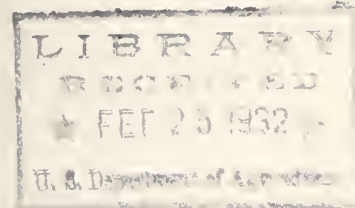 LIBRARY
RECEIVED
★ FEB 25 1932 ★
U. S. Department of Agriculture